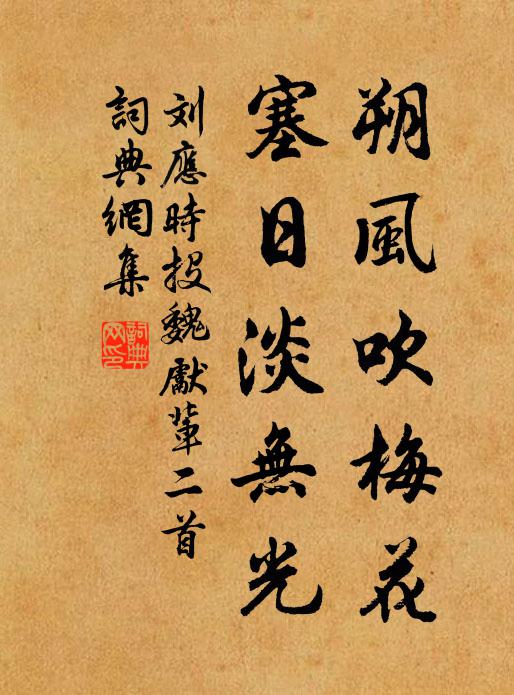 朔風吹梅花
塞日淡無光
刘應時投魏獻輩二首
詞典網集
詞典
网印